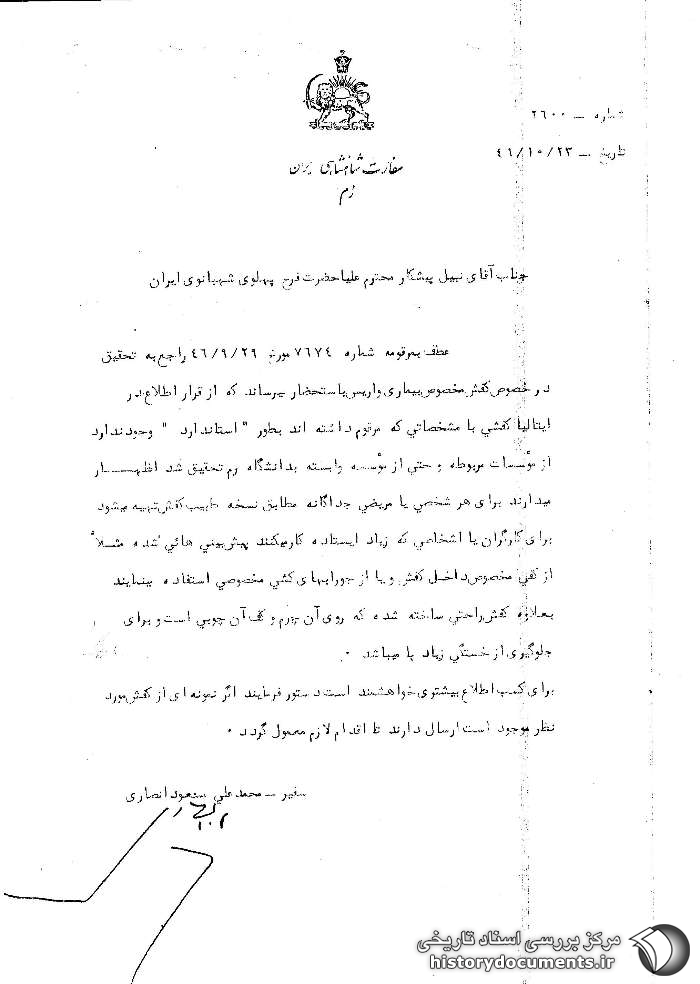 شماره ـ ۲۶۰۰
تاریخ ـ ۴۶/۱۰/۲۳
سفارت شاهنشاهی ایران
رُم
جناب آقای نبیل پیشکار محترم علیاحضرت فرح پهلوی شهبانوی ایران
عطف بمرقومه شماره ۷۶۷۴ مورخ ۴۶/۹/۲۹ راجع به تحقیق
در خصوص کفش مخصوص بیماری واریس باستحضار میرساند که از قرار اطلاع در
ایتالیا کفشی با مشخصاتی که مرقوم داشته اند بطور " استاندارد " وجود ندارد
از مؤسسات مربوطه و حتی از مؤسسه وابسته بدانشگاه رم تحقیق شد اظهار
میدارند برای هر شخصی یا مریضی جداگانه مطابق نسخه طبیب کفش تهیه میشود
برای کارگران یا اشخاصی که زیاد ایستاده کار میکنند پیش بینی هائی شده مثلاً
از کفی مخصوص داخل کفش و یا از جورابهای کشی مخصوصی استفاده مینمایند
بعلاوه کفش راحتی ساخته شده که روی آن چرم و کف آن چوبی است و برای
جلوگیری از خستگی زیاد پا میباشد ۰
برای کسب اطلاع بیشتری خواهشمند است دستور فرمایند اگر نمونه ای از کفش مورد
نظر موجود است ارسال دارند تا اقدام لازم معمول گردد ۰
سفیر ـ محمد علی مسعود انصاری
مرکز بررسی اسناد تاریخی
historydocuments.ir